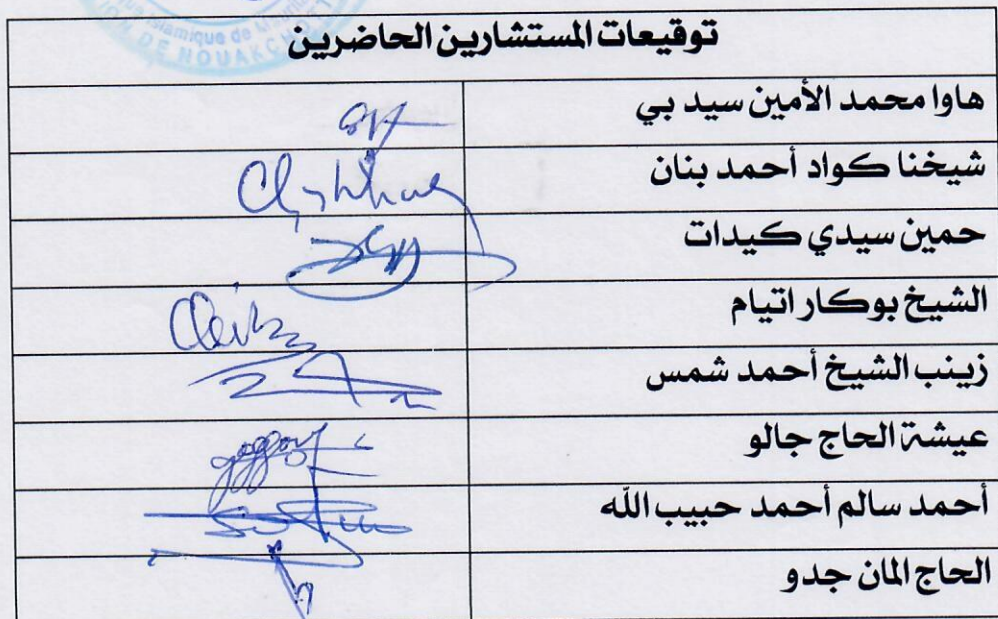 Islamique de
DE NOUAKCHOTT
توقيعات المستشارين الحاضرين
هاوا محمد الأمين سيد بي
شيخنا كواد أحمد بنان
حمين سيدي كيدات
الشيخ بوكار اتيام
زينب الشيخ أحمد شمس
عيشة الحاج جالو
أحمد سالم أحمد حبيب الله
الحاج المان جدو